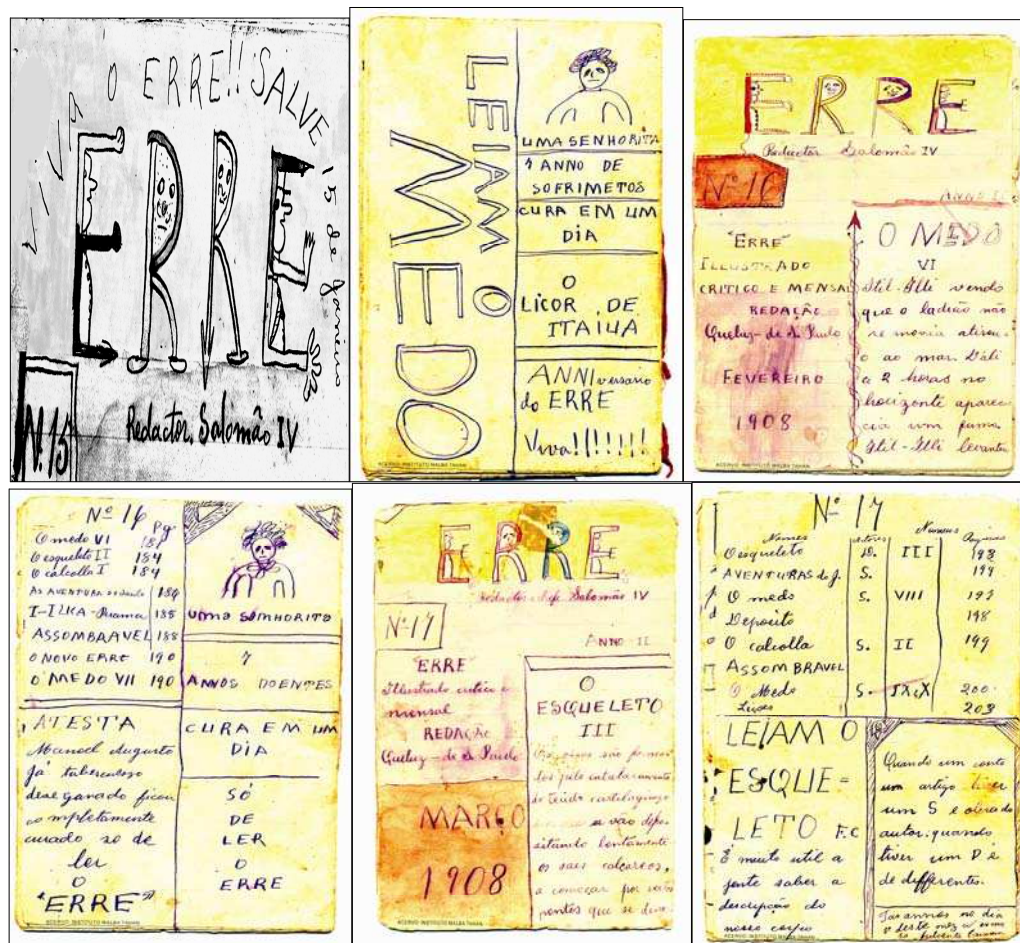 VIVA O ERRE!! SALVE 15 de Janeiro
ERRE
N. 15
Redactor, Salomão IV
LEIAM O
MEDO
UMA SENHORITA
7 ANNO DE
SOFRIMETOS
CURA EM UM
DIA
O
LICOR DE
ITAIUA
ANNIversario
do ERRE
Viva!!!!!!!
ACERVO INSTITUTO MALBA TAHAN
ERRE
Redactor Salomão IV
Nº 16
"ERRE"
ILLUSTRADO
CRITICO E MENSAL
REDAÇÃO
Queluz-de S. Paulo
FEVEREIRO
1908
O MEDO
VI
Itil-Illi vendo
que o ladrão não
se movia atirou-
o ao mar. Dali
a 2 horas no
horizonte apare-
cia um fumo
Itil-Illi levantou
ACERVO INSTITUTO MALBA TAHAN
Nº 16
Pg
O medo VI
O esqueleto II 184
O calcolla I 184
AS AVENTURA 184
I-ILKA- 185
ASSOMBRAVEL 188
O NOVO ERRE 190
O MEDO VII 190
ATESTA
Manoel Augusto
já tuberculoso
desenganado ficou
completamente
curado so de
ler
O
"ERRE"
UMA SINHORITA
7
ANNOS DOENTES
CURA EM UM
DIA
SÓ
DE
LER
O
ERRE
ACERVO INSTITUTO MALBA TAHAN
ERRE
Redactor chefe Salomão IV
Nº 17
ANNO II
"ERRE"
Illustrado critico e
mensal
REDAÇÃO
Queluz-de S. Paulo
MARÇO
1908
O
ESQUELETO
III
Os ossos são forma-
dos pelo
do tecido cartilaginoso
se vão depo-
sitando lentamente
os saes calcareos,
a começar por varios
pontos que se
ACERVO INSTITUTO MALBA TAHAN
Nº 17
Nomes Autores Numeros Paginas
O esqueleto D. III 198
AVENTURAS de J. S. 199
O medo S. VIII 197
Deposito 198
O calcolla S. II 199
ASSOMBRAVEL
O Medo S. IX e X 200
203
LEIAM O
ESQUE=
LETO F.C
É muito util a
gente saber a
descripção do
nosso corpo
Quando um conto
um artigo tiver
um S é obra do
autor: quando
tiver um D é
de differentes.
Faz annos no dia
deste mez
ACERVO INSTITUTO MALBA TAHAN